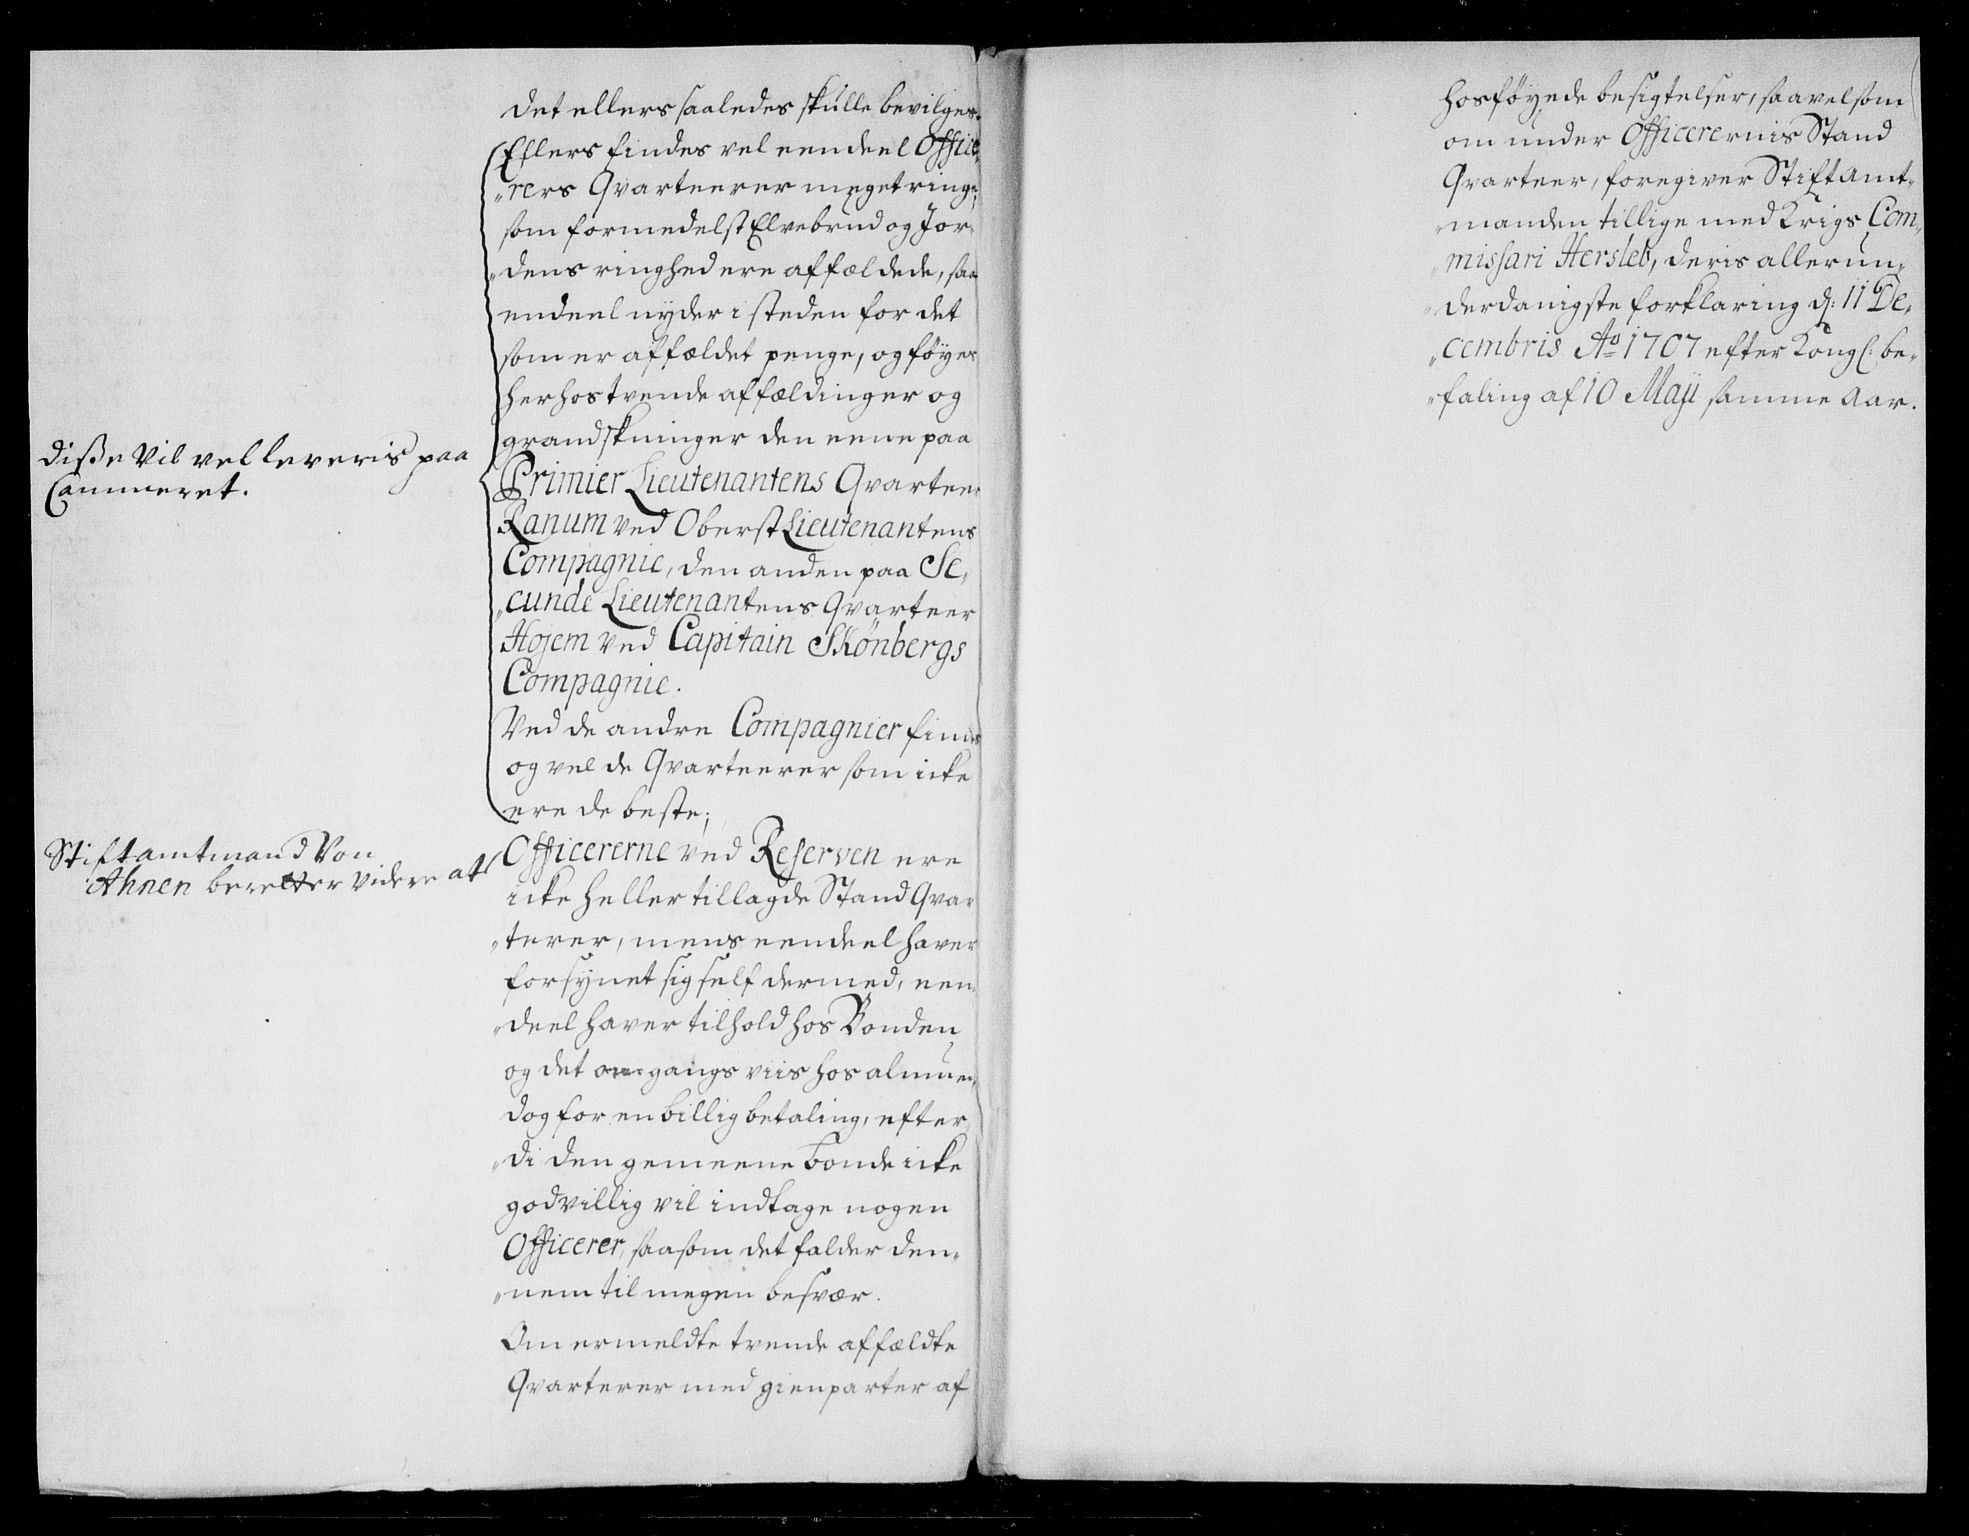 det ellers saaledes skulle bevilges.
Ellers findes vel eendeel Office„
„rers Qvarteerer meget ringe,
som formedelst Elvebrud og Jor„
„dens ringhed ere affældede, saa
endeel nyder i steden for det
som er affældet penge, og føyes
herhos tvende affældinger og
grandskninger den eene paa
Primier Lieutenantens Qvarteer
Ranum ved Oberst Lieutenantens
Compagnie, den anden paa Se„
„cunde Lieutenantens Qvarteer
Hojem ved Capitain Skönbergs
Compagnie.
Ved de andre Compagnier findes
og vel de Qvarteerer som icke
ere de beste;
disse vil vel leveris paa
Cammeret.
Stiftamtmand Von
Ahnen beretter videre at
Officererne ved Reserven ere
icke heller tillagde Stand Qvar
„terer, mens eendeel haver
forsynet sig self dermed, een„
„deel haver tilhold hos Bonden
og det omgangs viis hos almuen,
dog for en billig betaling, efter
„di den gemeene bonde icke
godvillig vil indtage nogen
Officerer, saasom det falder den„
„nem til megen besvær.
Om ermeldte tvende affældte
Qvarterer med gienparter af
hosföyede besigtelser, saavelsom
om under Officerernis Stand
Qvarteer, foregiver Stiftamt„
„manden tillige med Krigs Com„
„missari Hersleb, deris allerun„
„derdanigste forklaring d: 11 De„
„cembris Ao 1707 efter Kongl: be„
„faling af 10 Maji samme Aar.